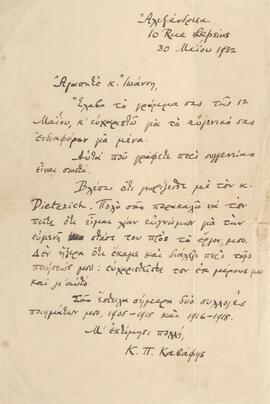 Ἀλεξάνδρεια
10 Rue Lepsius
30 Μαΐου 1932
Ἀγαπητὲ κ. Ἰωάννη,
Ἔλαβα τὸ γράμμα σας τῆς 12
Μαΐου, κ' εὐχαριστῶ γιὰ τὸ εὐγενικό σας
ἐνδιαφέρον γιὰ μένα.
Αὐτὰ ποὺ γράφετε περὶ
εἶναι σωστά.
Βλέπω ὅτι μὲ τὸν κ.
Dieterich. Πολὺ σᾶς παρακαλῶ νὰ τὸν
πεῖτε ὅτι εἶμαι λίαν εὐγνώμων γιὰ τὴν
εὐμενῆ στάσι του πρὸς τὸ ἔργον μου.
Δὲν ἤξερα ὅτι ἔκαμε καὶ διάλεξι περὶ τῆς
ποιήσεώς μου· εὐχαριστεῖστε τον ἐκ μέρους μου
καὶ γι' αὐτό.
Σᾶς ἔστειλα σήμερα δύο συλλογὲς
ποιημάτων μου, 1905-1915 καὶ 1916-1918.
Μ' ἐκτίμησι πολλή,
Κ. Π. Καβάφης